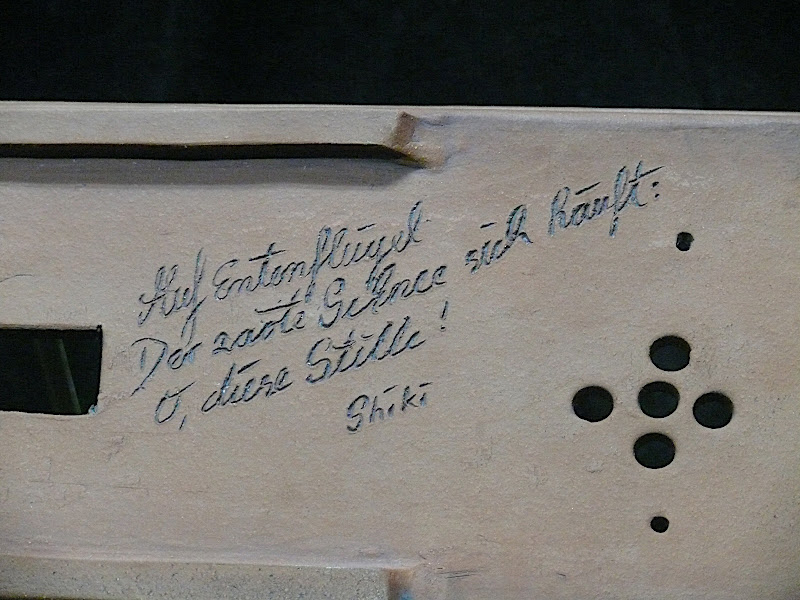 Auf Entenflügel
Der zarte Schnee sich häuft:
O, diese Stille!
Shiki